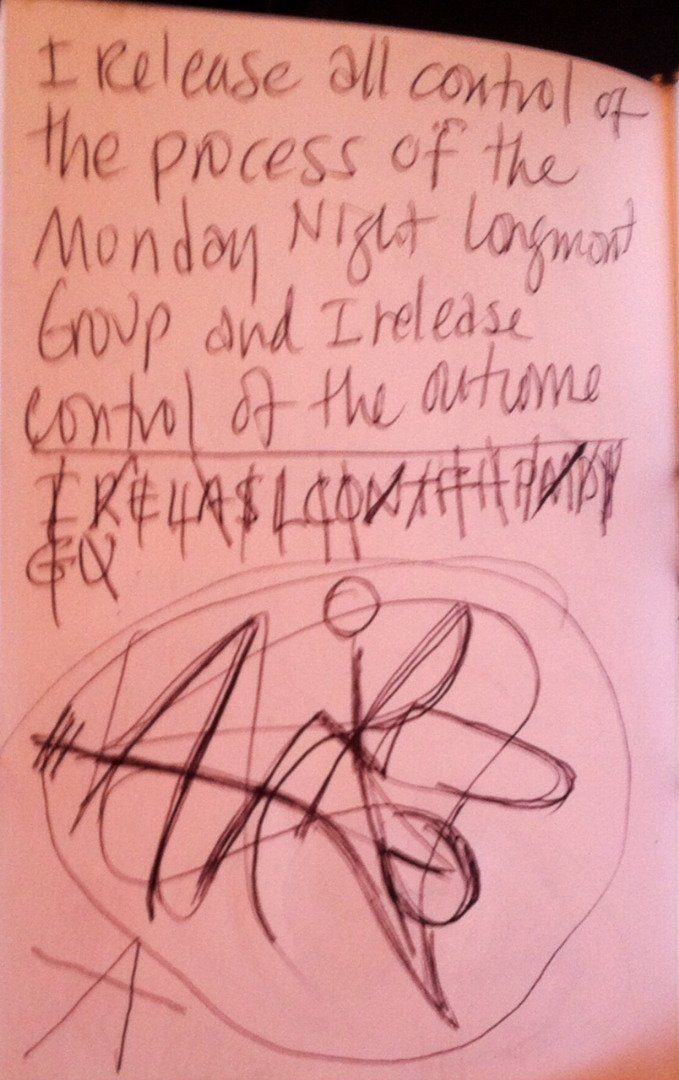 I Release all control of
the process of the
Monday Night Longmont
Group and I release
control of the outcome
I R E L A S L C O N T F H P M D Y
G U